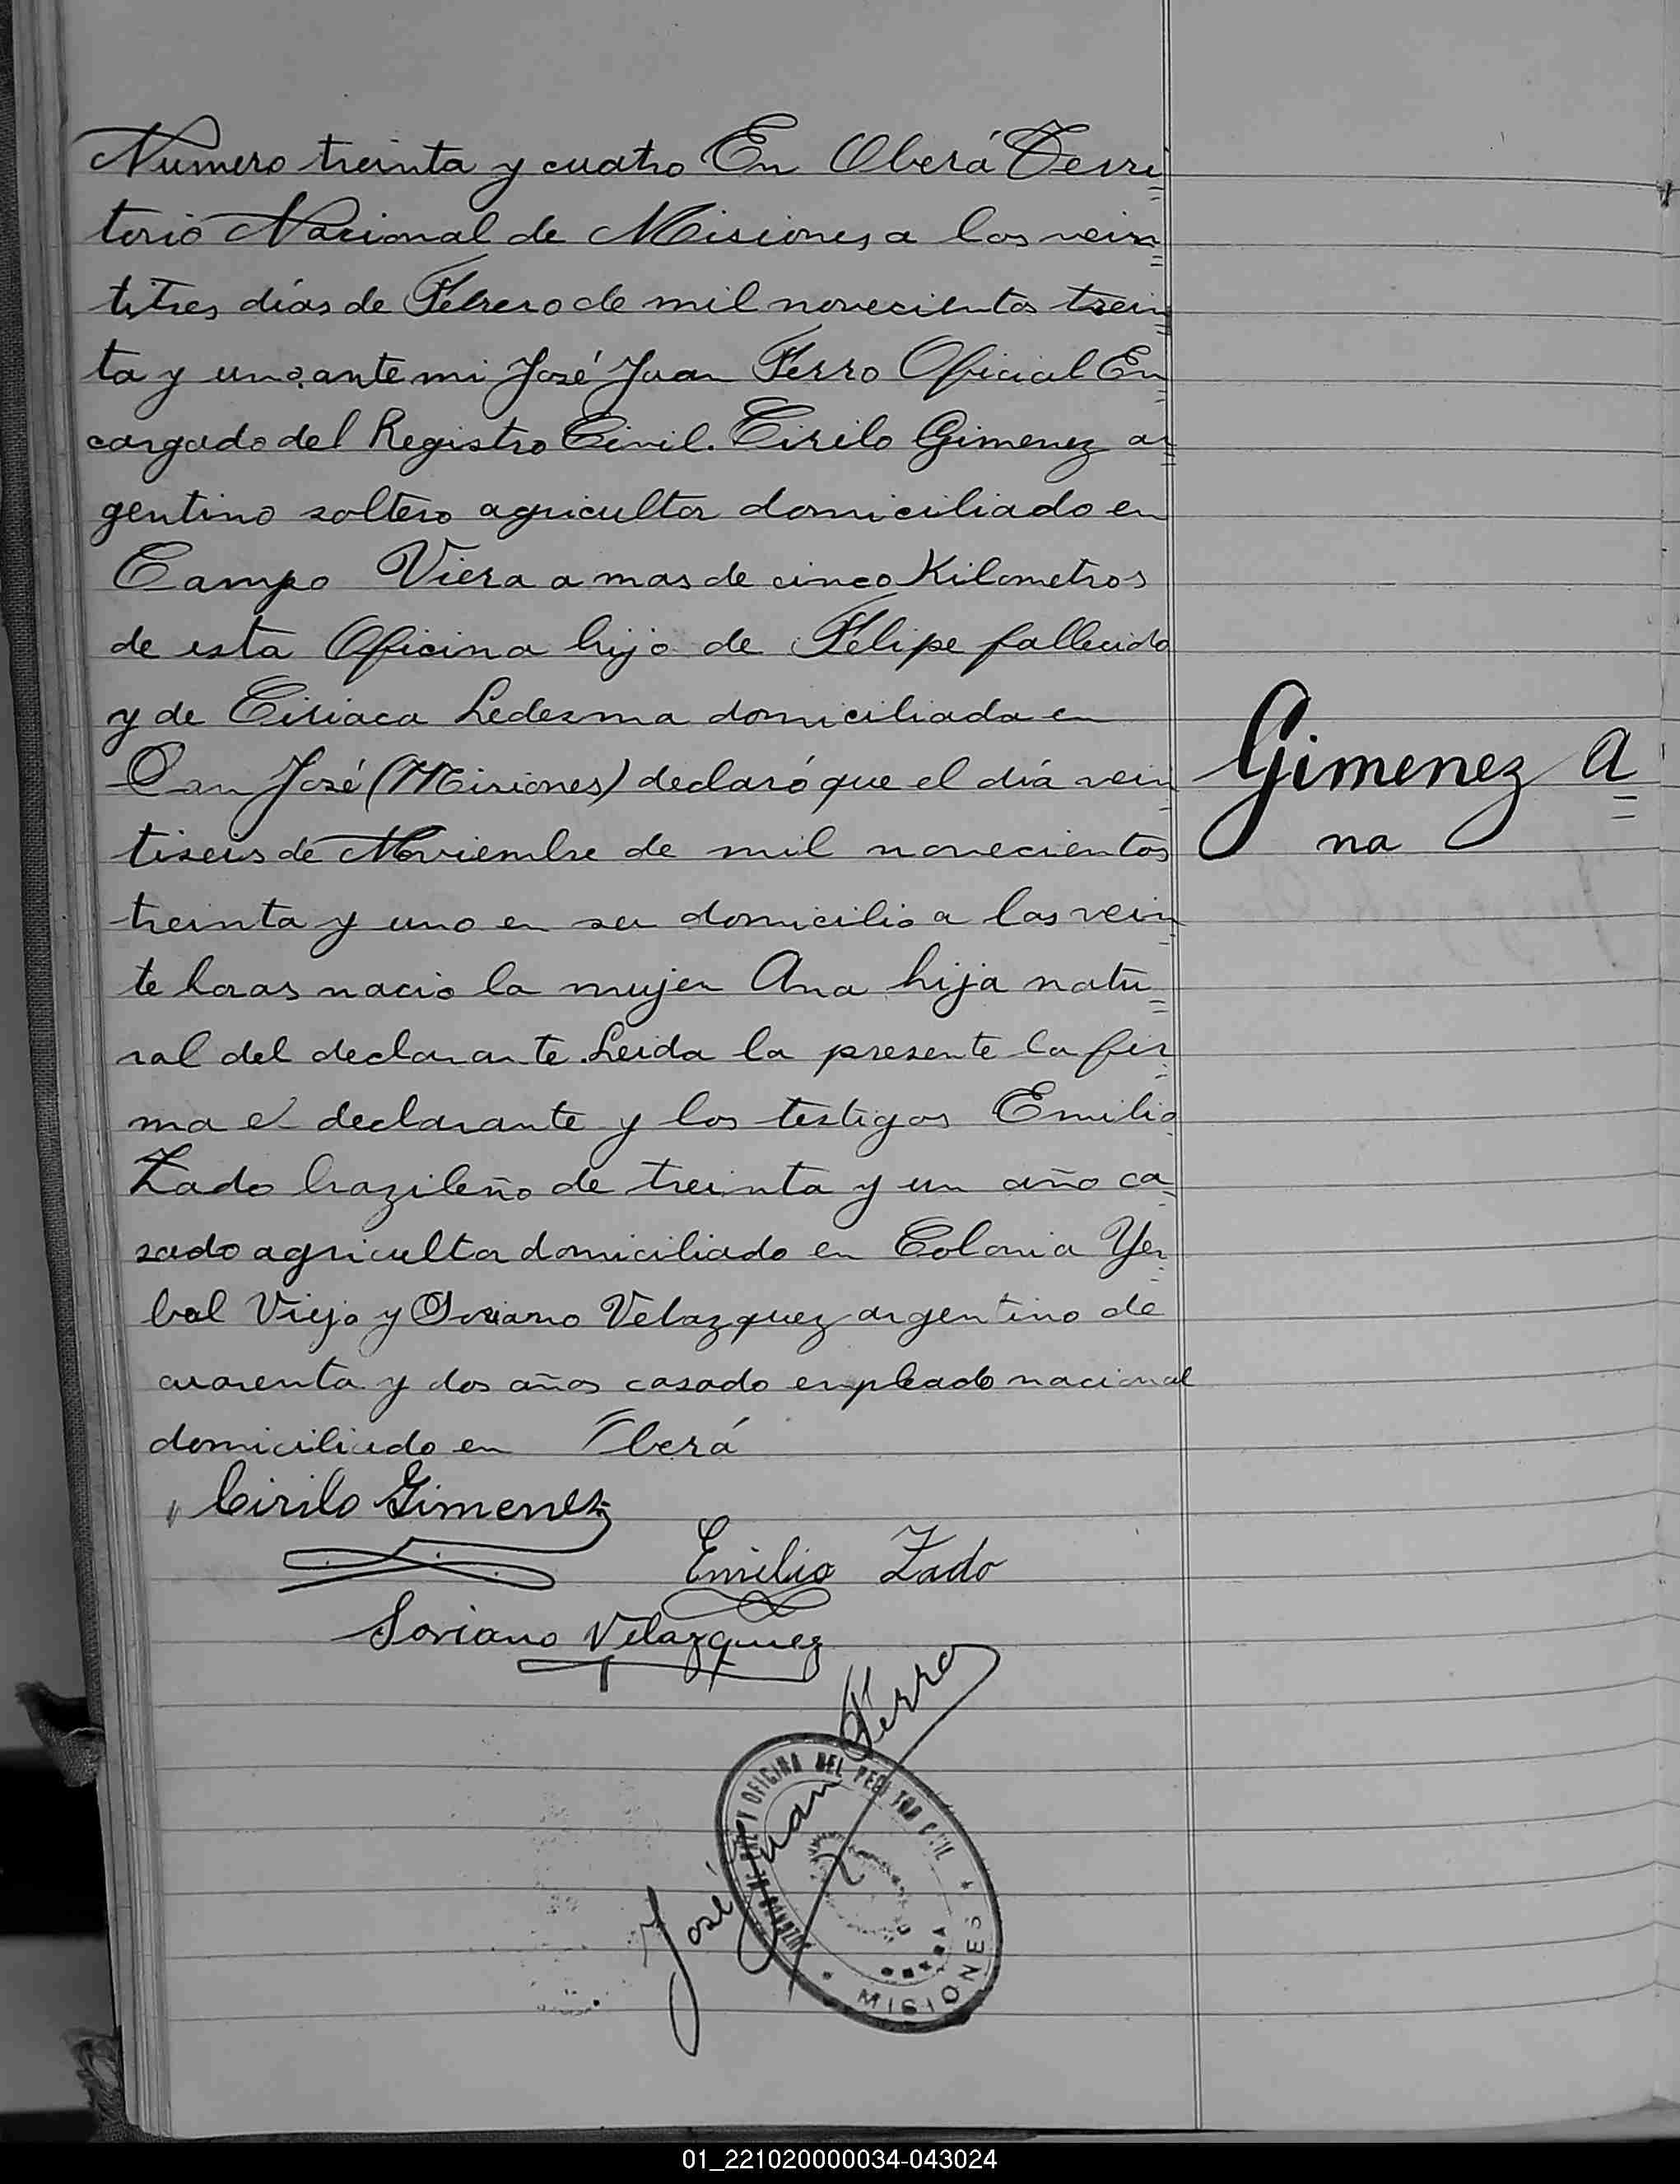 Numero treinta y cuatro En Oberá Terri
torio Nacional de Misiones a los vein
titres días de Febrero de mil novecientos trein
ta y uno, ante mi José Juan Ferro Oficial En
cargado del Registro Civil. Cirilo Gimenez ar
gentino soltero agricultor domiciliado en
Campo Viera a mas de cinco Kilometros
de esta Oficina hijo de Felipe fallecido
y de Ciriaca Ledezma domiciliada en
San José (Misiones) declaró que el día vein
tiseis de Noviembre de mil novecientos
treinta y uno en su domicilio a las vein
te horas nacio la mujer Ana hija natu
ral del declarante. Leida la presente la fir
ma el declarante y los testigos Emilio
Zado brazileño de treinta y un año ca
sado agricultor domiciliado en Colonia Yer
bal Viejo y Soriano Velazquez argentino de
cuarenta y dos años casado empleado nacional
domiciliado en Oberá
Gimenez A
na
Cirilo Gimenez
Emilio Zado
Soriano Velazquez
José Juan Ferro
OFICINA DEL REGISTRO CIVIL
MISIONES
01_221020000034-043024